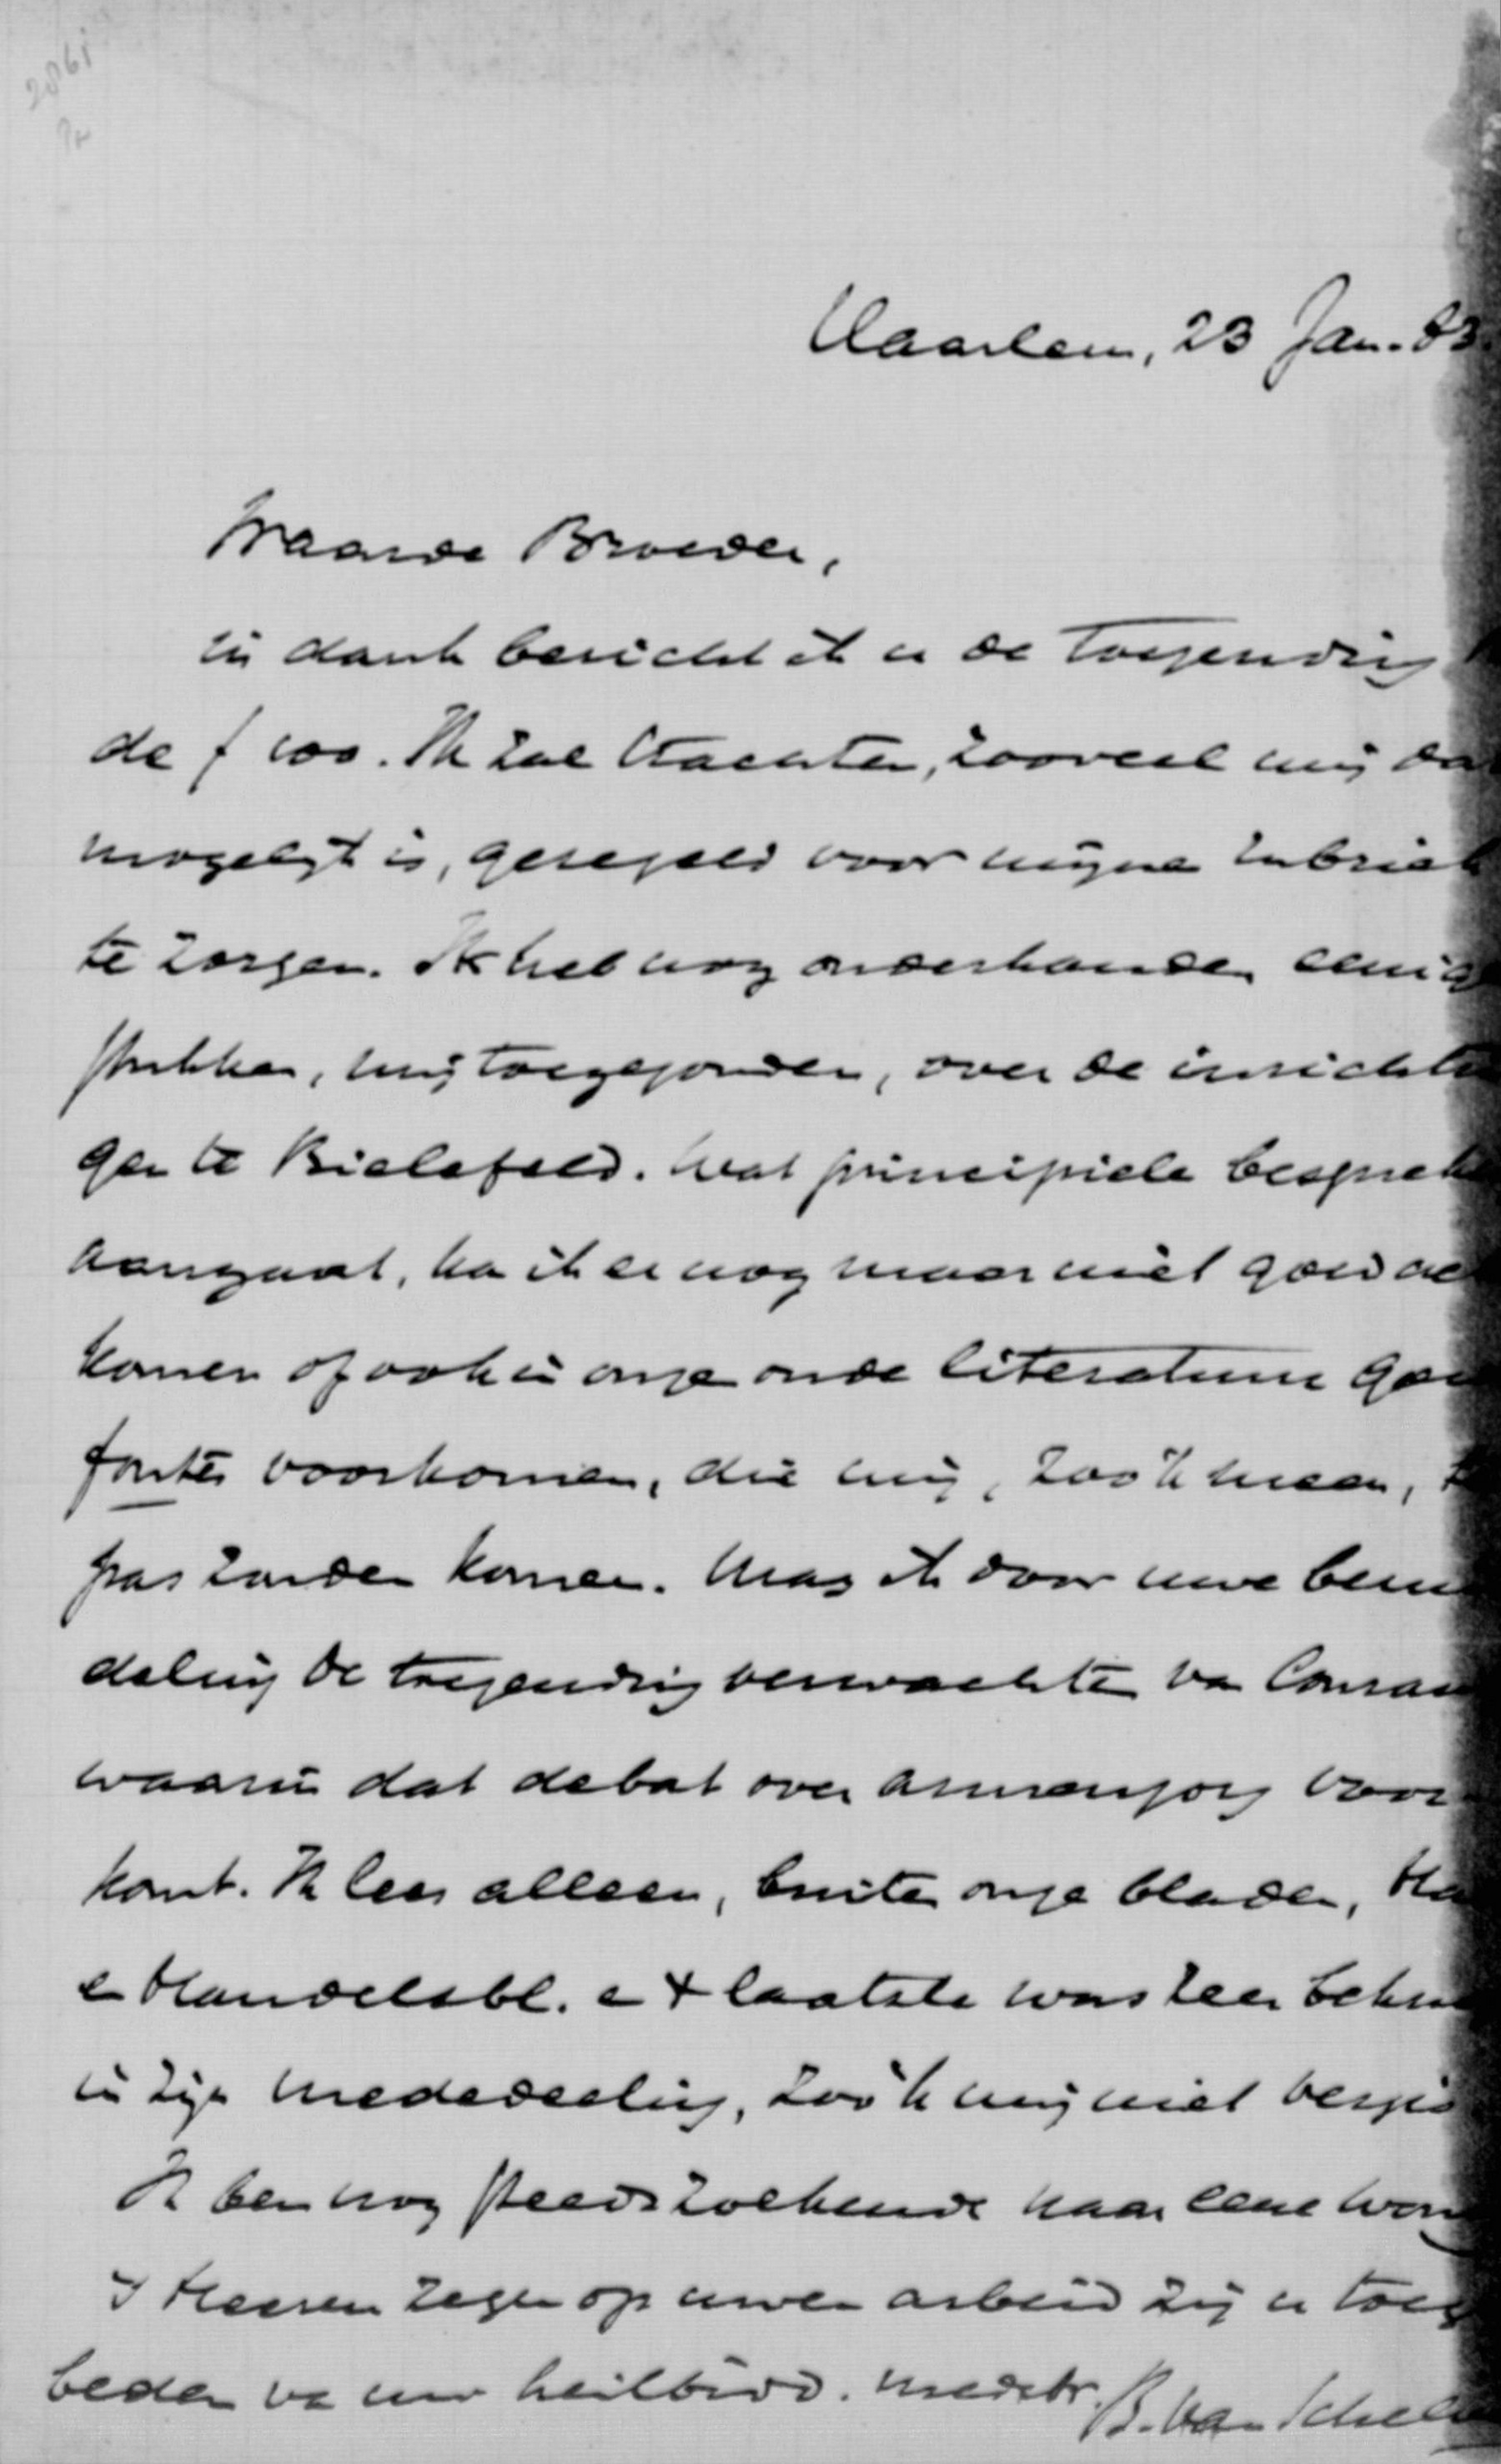 2861
Haarlem, 23 Jan. 83.
Waarde Broeder,
In dank bericht ik u de toezending
de f 100. Ik zal trachten, zooveel mij da
mogelijk is, geregeld voor mijne rubriek
te zorgen. Ik heb nog onderhanden eenige
stukken, mij toegezonden, over de inrichtin
gen te Bielefeld. Wat principiele besprek
aangaat, ka ik er nog maar niet goed
komen of ook in onze oude literatuur goe
fontes voorkomen, die mij, zoo 'k meen,
pas zouden komen. Mag ik door uwe bemid
deling de toezending verwachten va Couran
waarin dat debat over armenzorg voor
komt. Ik lees alleen, buiten onze bladen, Ha
e Handelsbl. e 't laatste was zeer bekn
in zijn mededeeling, zoo 'k mij niet vergis
Ik ben nog steeds zoekende naar eene won
's Heeren zegen op uwen arbeid zij u toeg
beden va uw heilbidd. medebr. B. van Schel